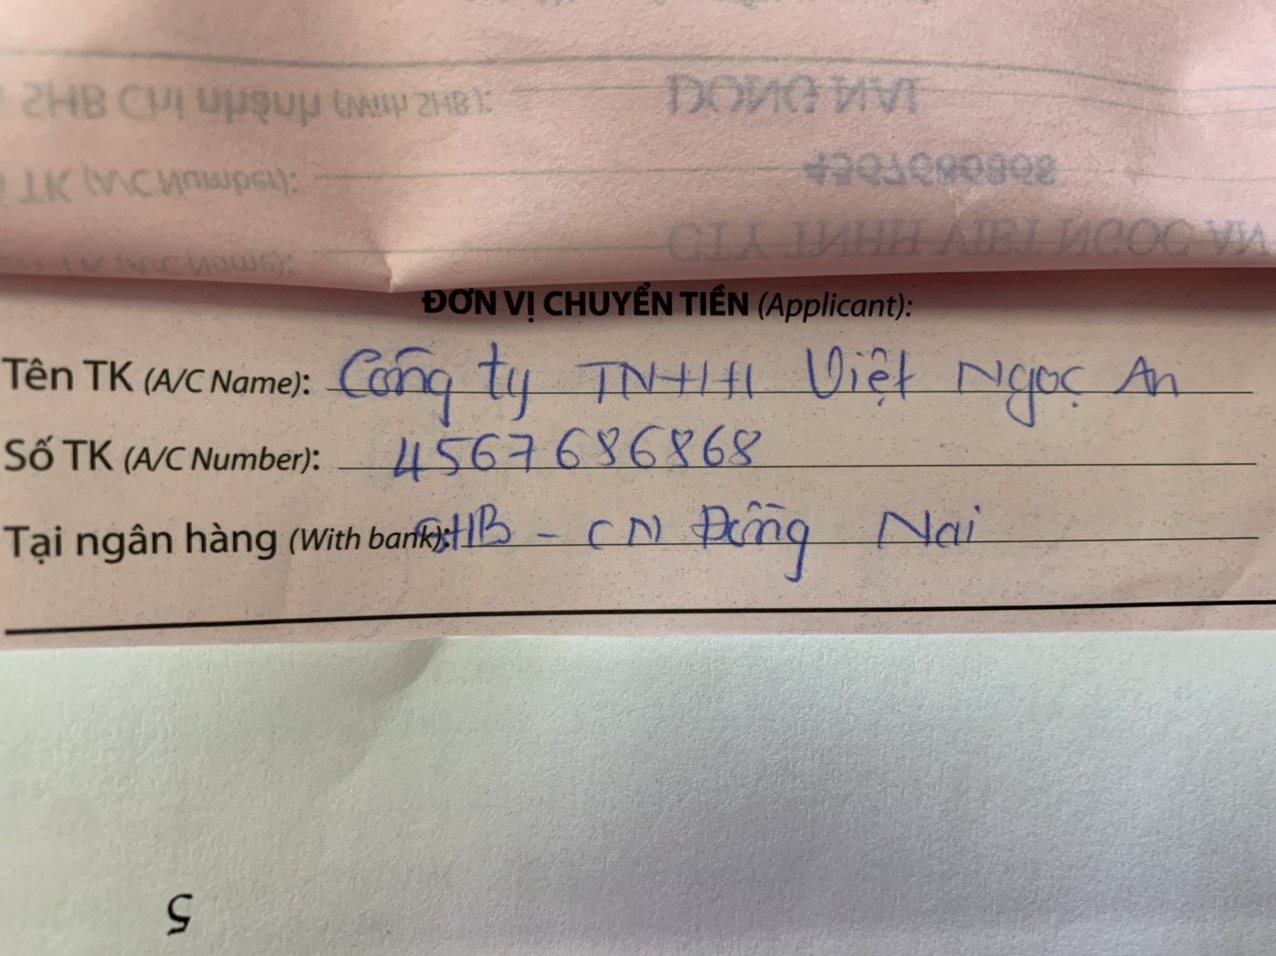 SHB Chi nhánh (With SHB): DONG NAI
TK (A/C Number): 4567686868
TK (A/C Name): CTY TNHH VIET NGOC AN
ĐƠN VỊ CHUYỂN TIỀN (Applicant):
Tên TK (A/C Name): Công ty TNHH Việt Ngọc An
Số TK (A/C Number): 4567686868
Tại ngân hàng (With bank): SHB - CN Đồng Nai
5